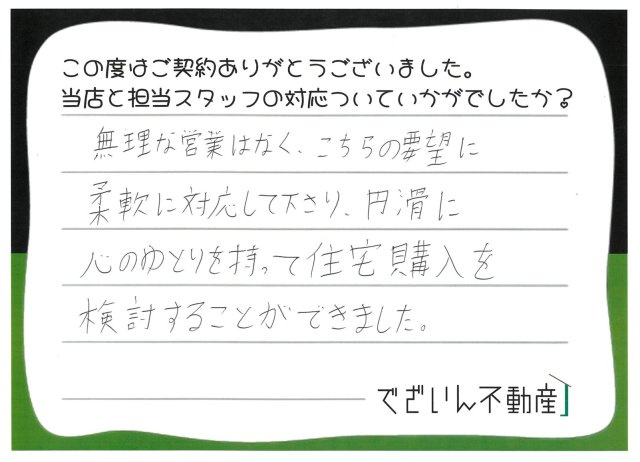 この度はご契約ありがとうございました。
当店と担当スタッフの対応ついていかがでしたか？
無理な営業はなく、こちらの要望に
柔軟に対応して下さり、円滑に
心のゆとりを持って住宅購入を
検討することができました。
でざいん不動産